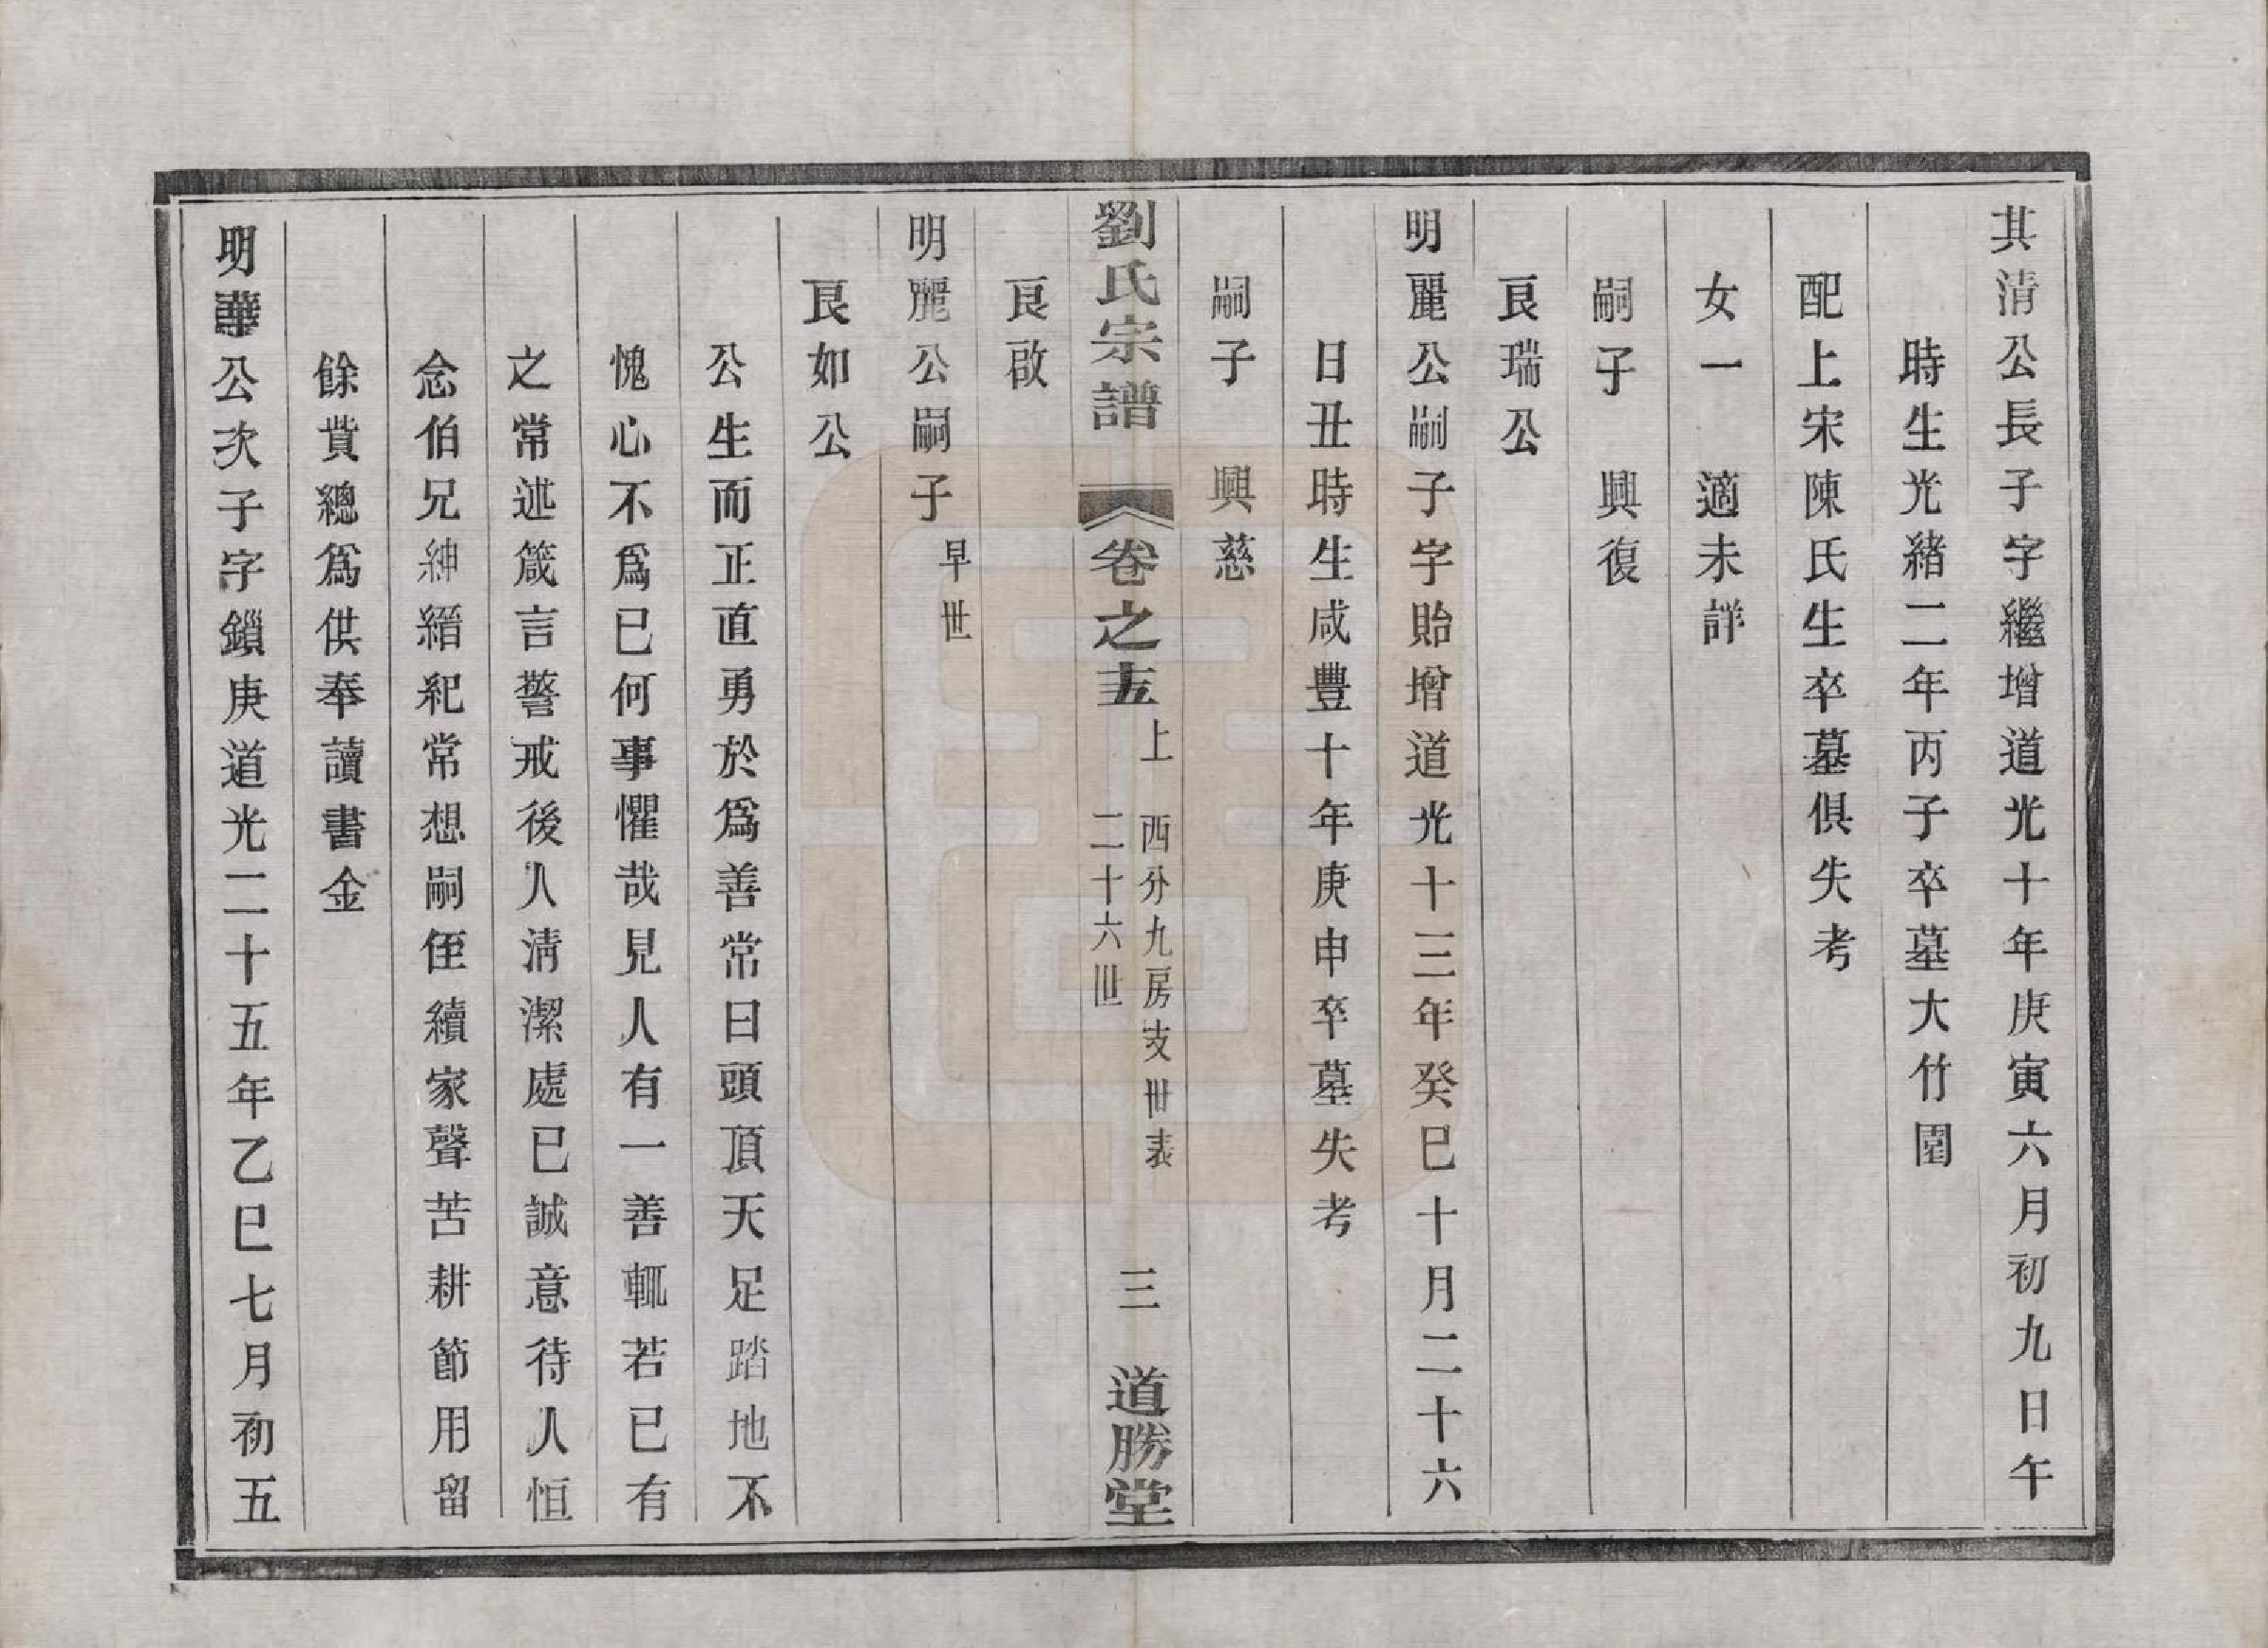 其清公長子字繼增道光十年庚寅六月初九日午
時生光緒二年丙子卒墓大竹園
配上宋陳氏生卒墓俱失考
女一　適未詳
嗣子　興復
良瑞公
明麗公嗣子字貽增道光十三年癸巳十月二十六
日丑時生咸豐十年庚申卒墓失考
嗣子　興慈
劉氏宗譜　卷之十五上　西分九房支世表　二十六世　三　道勝堂
良啟
明麗公嗣子　早世
良如公
公生而正直勇於爲善常曰頭頂天足踏地不
愧心不爲已何事懼哉見人有一善輒若已有
之常述箴言警戒後人清潔處已誠意待人恒
念伯兄紳縉紀常想嗣侄續家聲苦耕節用留
餘貲總爲供奉讀書金
明華公次子字鎻庚道光二十五年乙巳七月初五